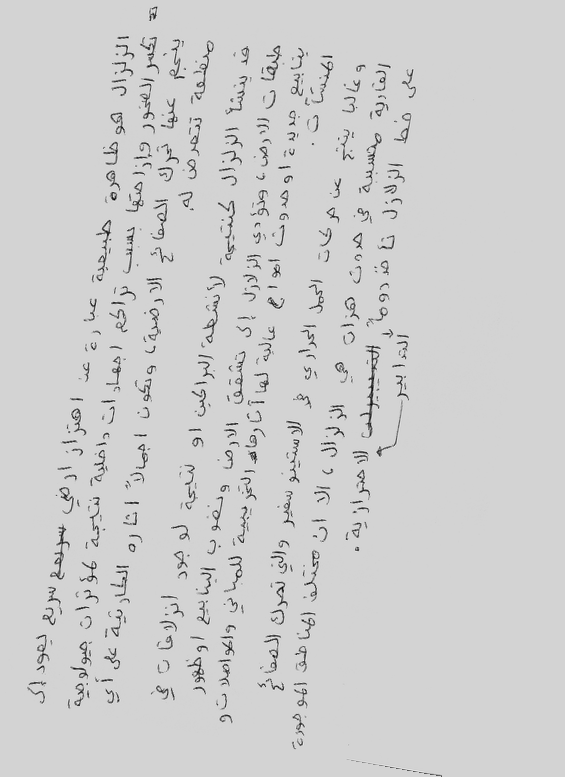 الزلزال هو ظاهرة طبيعية عبارة عن اهتزاز ارضي سريع يعود إلى
تكسر الصخور وإزاحتها بسبب تراكم اجهادات داخلية نتيجة لمؤثرات جيولوجية
ينجم عنها تحرك الصفائح الارضية، وتكون اجمالاً اثاره الكارثية على أي
منطقة تتعرض له.
قد ينشأ الزلزال كنتيجة لأنشطة البراكين او نتيجة لوجود انزلاقات في
طبقات الارض، وتؤدي الزلازل إلى تشقق الارض ونضوب الينابيع او ظهور
ينابيع جديدة او حدوث امواج عالية لها أثارها التخريبية للمباني والمواصلات و
المنشآت.
وغالبا ينتج عن حركات الحمل الحراري في الاستينوسفير والتي تحرك الصفائح
القارية متسببة في حدوث هزات هي الزلزال، الا ان مختلف المناطق الموجودة
على خط الزلازل تأخذ دوماً التدابير الاحترازية.